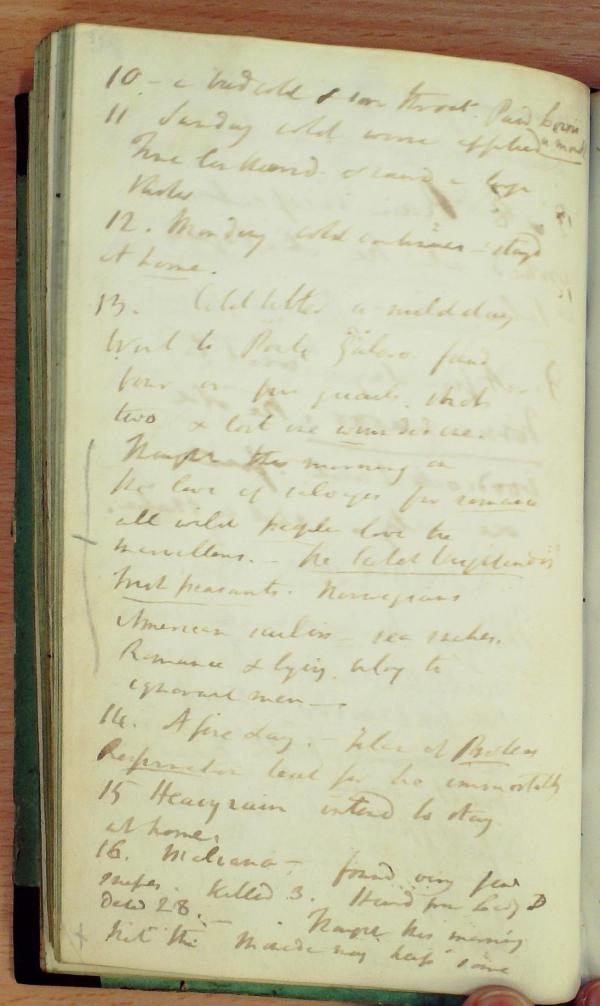 10 - a bad cold & sore throat. Paid
11 Sunday cold worse applied
12. Monday cold continues - stayd
at home.
13. Cold better a mild day
Went to Porto found
four or five quails. shot
two & lost one wounded one.
this morning on
the love of savages for romance
all wild people love the
marvellous. - the Scotch Highlanders
Irish peasants. Norwegians
American sailors - sea snakes.
Romance & lying belong to
ignorant men -
14. A fine day. - Idea of
lead for the immortality
15 Heavy rain intend to stay
at home.
16. found very few
snipes. Killed 3. Heard from Lady D
Date 28. - this morning
that the may have some